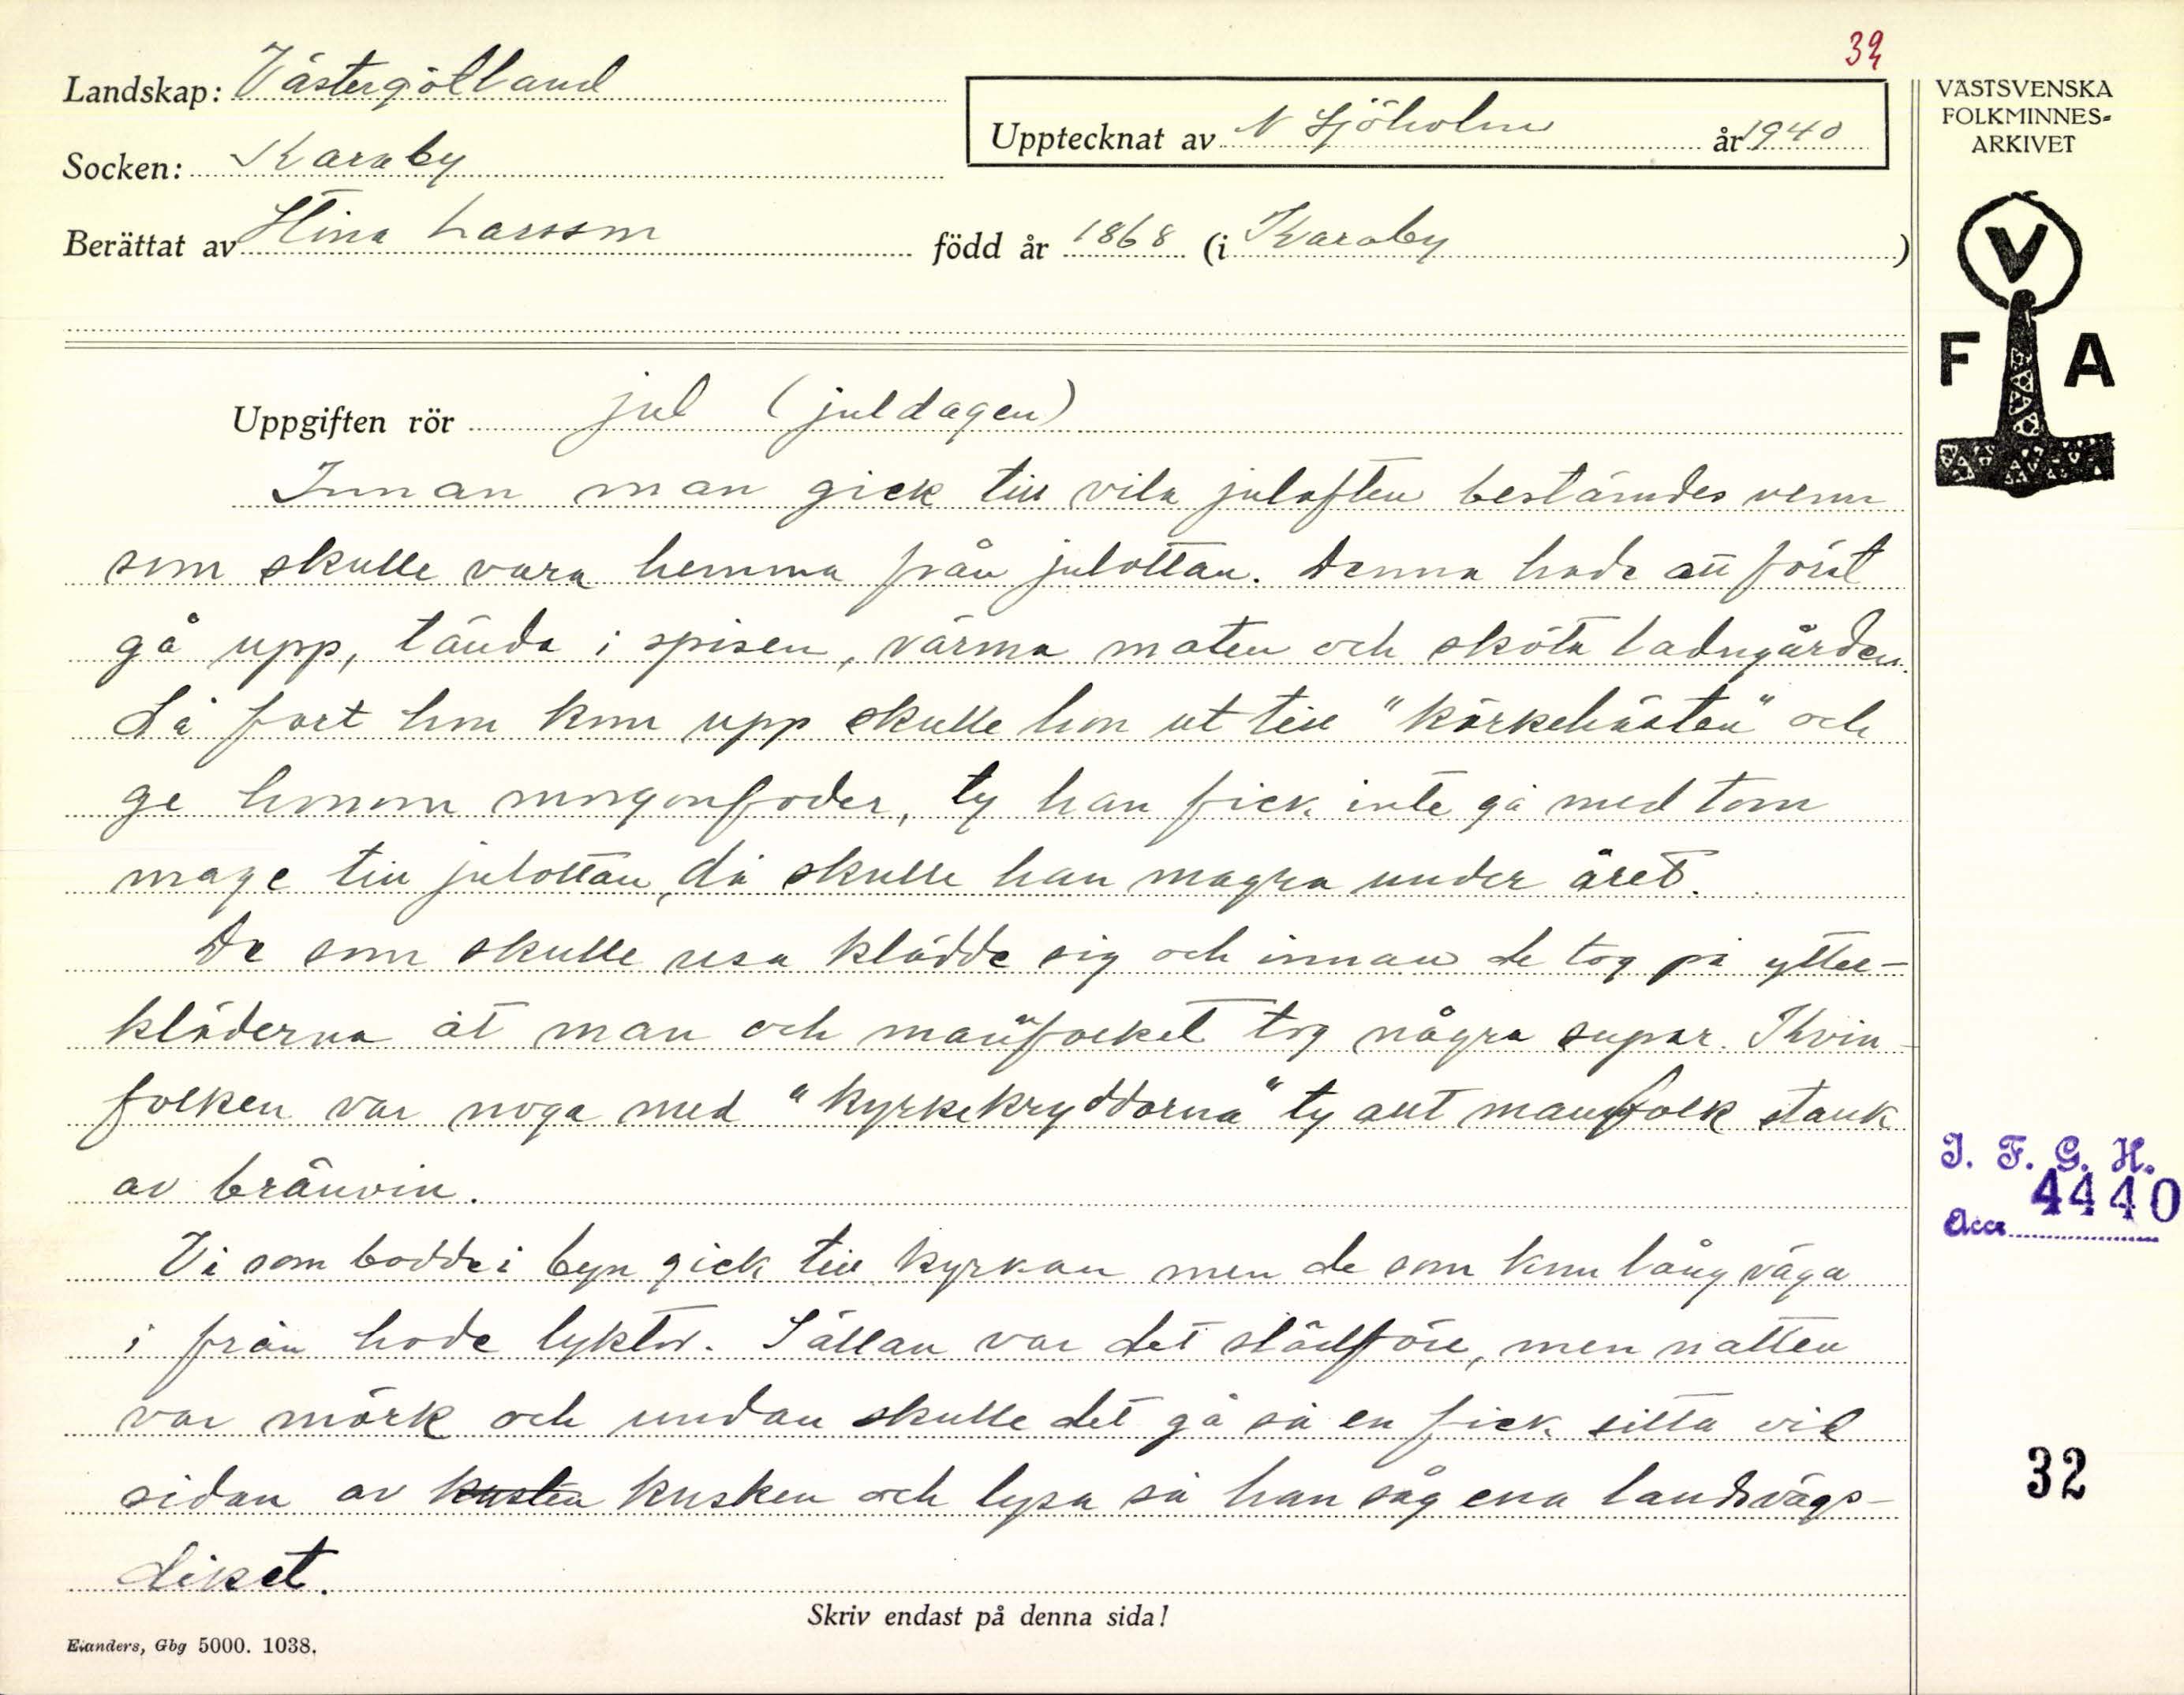 39
Landskap: Västergötland
Upptecknat av N Sjöholm år 1940
Socken: Karaby
Berättat av Stina Larsson född år 1868 (i Karaby)
Uppgiften rör jul (juldagen)
Innan man gick till vila julaften bestämdes vem
som skulle vara hemma från julottan. Denna hade att först
gå upp, tända i spisen, värma maten och sköta ladugården.
Så fort hon kom upp skulle hon ut till "körkehästen" och
ge honom morgonfoder, ty han fick inte gå med tom
mage till julottan, då skulle han magra under året.
De som skulle resa klädde sig och innan de tog på ytter-
kläderna åt man och manfolket tog några supar. Kvin-
folken var noga med "kyrkekryddorna" ty allt manfolk stank
av brännvin.
Vi som bodde i byn gick till kyrkan men de som kom lång väga
i från hade lyktor. Sällan var det slädföre, men natten
var mörk och undan skulle det gå så en fick sitta vid
sidan av kusten kusken och lysa så han såg ena landsvägs-
diket.
Skriv endast på denna sida!
Elanders, Gbg 5000. 1038.
VÄSTSVENSKA
FOLKMINNES-
ARKIVET
V
F A
I. F. G. H.
4440
Acc.
32